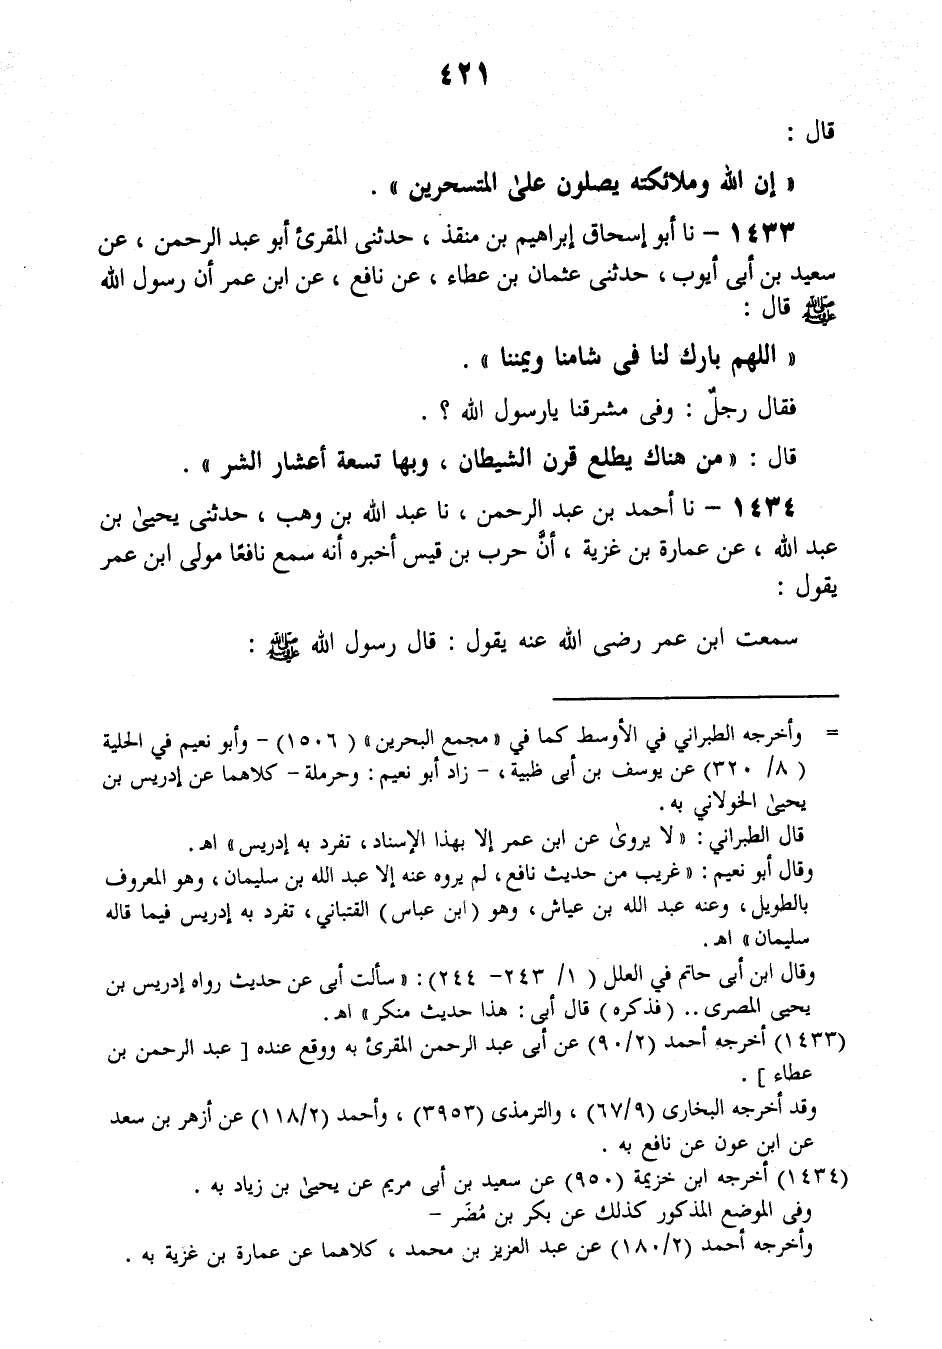 ٤٢١
قال :
« إن الله وملائكته يصلون علىٰ المتسحرين » .
١٤٣٣ – نا أبو إسحاق إبراهيم بن منقذ ، حدثنى المقرئ أبو عبد الرحمن ، عن
سعيد بن أبى أيوب ، حدثنى عثمان بن عطاء ، عن نافع ، عن ابن عمر أن رسول الله
ﷺ قال :
« اللهم بارك لنا فى شامنا ويمننا » .
فقال رجلٌ : وفى مشرقنا يارسول الله ؟ .
قال : « من هناك يطلع قرن الشيطان ، وبها تسعة أعشار الشر » .
١٤٣٤ – نا أحمد بن عبد الرحمن ، نا عبد الله بن وهب ، حدثنى يحيىٰ بن
عبد الله ، عن عمارة بن غزية ، أنَّ حرب بن قيس أخبره أنه سمع نافعًا مولى ابن عمر
يقول :
سمعت ابن عمر رضى الله عنه يقول : قال رسول الله ﷺ :
= وأخرجه الطبراني في الأوسط كما في « مجمع البحرين » ( ١٥٠٦) – وأبو نعيم في الحلية
( ٨/ ٣٢٠) عن يوسف بن أبى ظبية ، – زاد أبو نعيم : وحرملة – كلاهما عن إدريس بن
يحيىٰ الخولاني به .
قال الطبراني : « لا يروىٰ عن ابن عمر إلا بهذا الإسناد ، تفرد به إدريس » اهـ .
وقال أبو نعيم : « غريب من حديث نافع ، لم يروه عنه إلا عبد الله بن سليمان ، وهو المعروف
بالطويل ، وعنه عبد الله بن عياش ، وهو (ابن عباس) القتباني ، تفرد به إدريس فيما قاله
سليمان » اهـ .
وقال ابن أبى حاتم في العلل ( ١/ ٢٤٣- ٢٤٤) : « سألت أبى عن حديث رواه إدريس بن
يحيى المصرى .. ( فذكره ) قال أبى : هذا حديث منكر » اهـ .
(١٤٣٣) أخرجه أحمد (٩٠/٢) عن أبى عبد الرحمن المقرئ به ووقع عنده [ عبد الرحمن بن
عطاء ] .
وقد أخرجه البخارى (٦٧/٩) ، والترمذى (٣٩٥٣) ، وأحمد (١١٨/٢) عن أزهر بن سعد
عن ابن عون عن نافع به .
(١٤٣٤) أخرجه ابن خزيمة (٩٥٠) عن سعيد بن أبى مريم عن يحيىٰ بن زياد به .
وفى الموضع المذكور كذلك عن بكر بن مُضَر –
وأخرجه أحمد (١٨٠/٢) عن عبد العزيز بن محمد ، كلاهما عن عمارة بن غزية به .